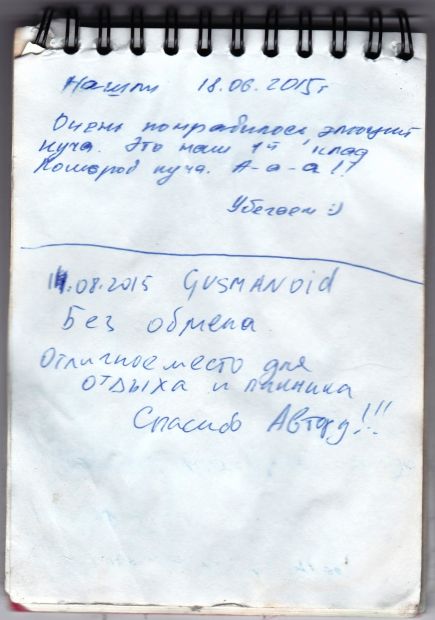 Нашли 18.06.2015г
Очень понравилось эмоций
куча. Это наш 1й клад
Комаров куча. А-а-а!!
Убегаем :)
11.08.2015 GUSMANOID
Без обмена
Отличное место для
отдыха и пикника
Спасибо Автору!!!